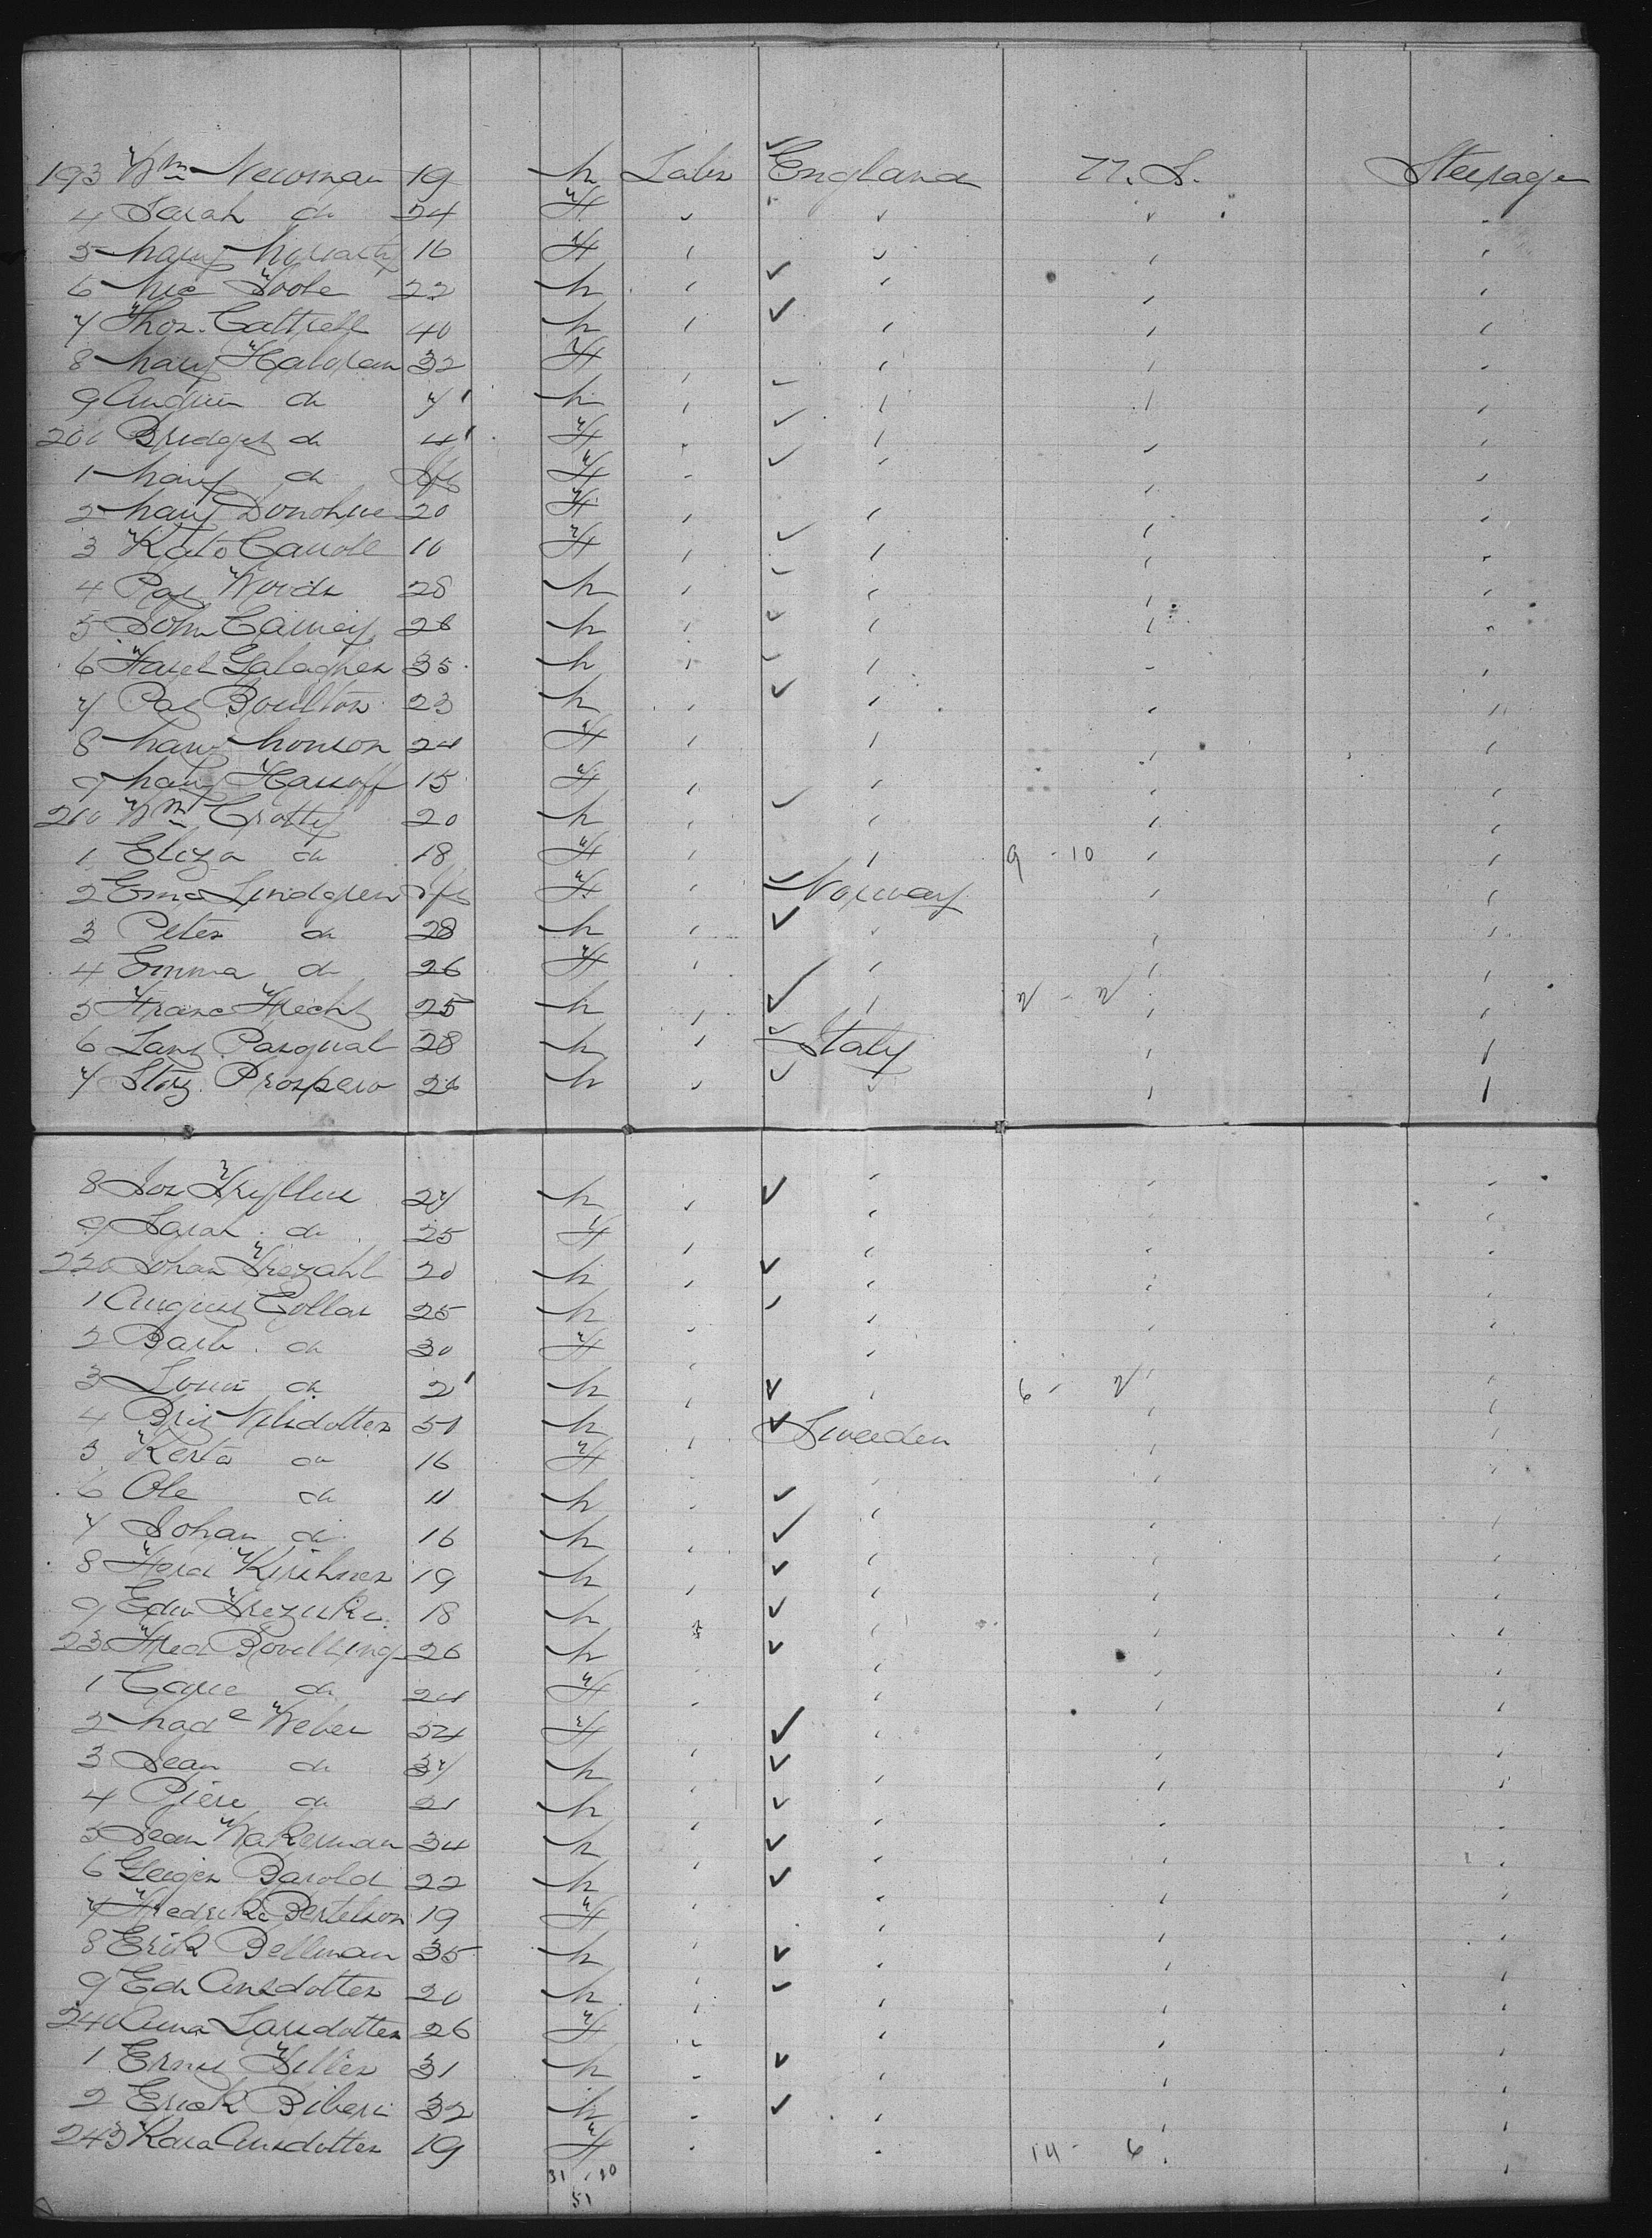 193 Wm Newman 19 m Labr England U. S. Steerage
4 Sarah do 24 F
5 Mary Moriarty 16 F
6 Mic Toole 22 m
7 Thos. Cattrell 40 m
8 Mary Halloran 32 F
9 Andrew do 7 m
200 Bridget do 4 F
1 Mary do Inft F
2 Mary Donohue 20 F
3 Kate Carroll 16 F
4 Pat Woods 28 m
5 John Carney 26 m
6 Galagher 35 m
7 Pat Boulton 23 m
8 Mary Monson 24 F
9 Mary 15 F
210 Wm Crotty 20 m
1 Eliza do 18 F 9 - 10
2 Erna Lindgren Inft F Norway
3 Peter do 28 m
4 Emma do 26 F
5 Franc Frecht 25 m
6 Lanz Pasqual 28 m Italy
7 Prospero 26 m
8 Jos 27 m
9 Sarah do 25 F
220 Johan 20 m
1 August Collas 25 m
2 Barb. do 30 F
3 Louis do 2 m 6 - 7
4 Nilsdotter 51 m Sweden
5 Kersta do 16 F
6 Ole do 11 m
7 Johan do 16 m
8 Ferd Kirchner 19 m
9 Edw 18 m
230 Fred 26 m
1 Carie do 24 F
2 Made Weber 54 F
3 Jean do 37 m
4 Piere do 21 m
5 Jean Wakerman 34 m
6 Barold 22 m
7 Fredrika Bertelson 19 F
8 Erik Bellman 35 m
9 Ed Ansdotter 20 m
240 Anna Larsdotter 26 F
1 Ernst 31 m
2 Erick Biberi 32 m
243 Kara Ansdotter 19 F 14 - 6
31 . 20
51